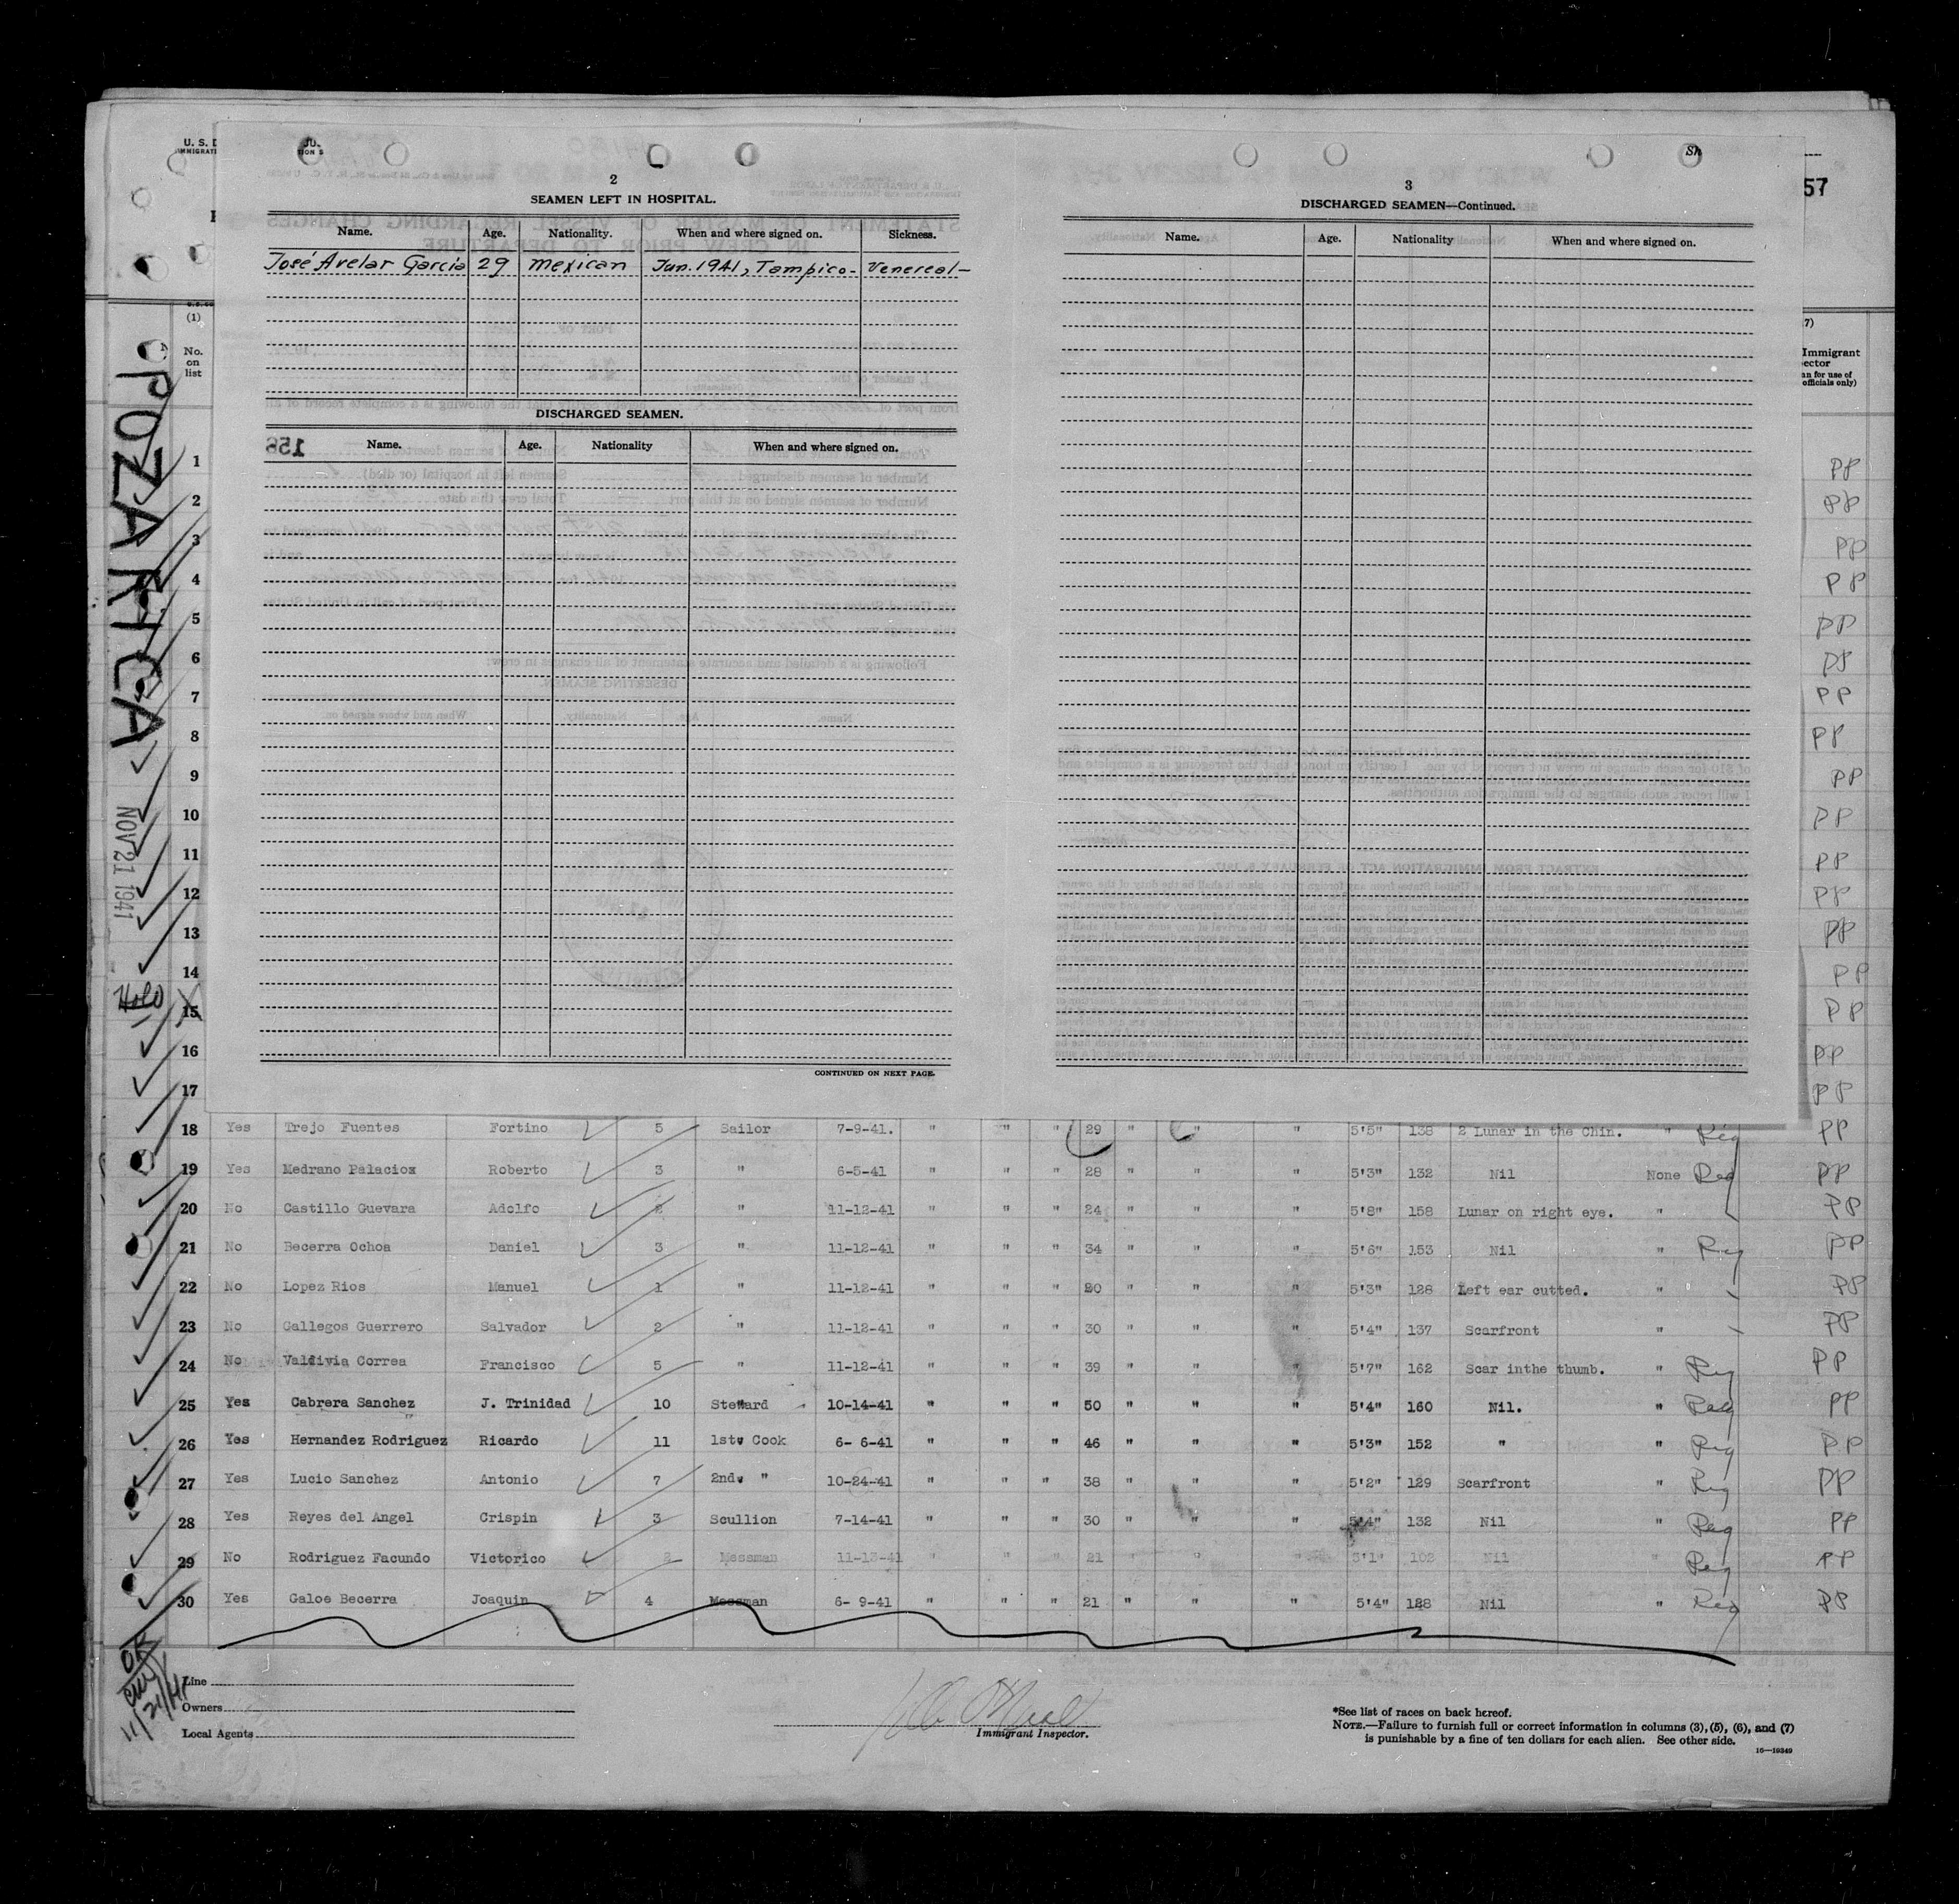 U. S. D
IMMIGRATI
JU.
TION S
Sh
57
2
SEAMEN LEFT IN HOSPITAL.
Name. Age. Nationality. When and where signed on. Sickness.
José Avelar García 29 mexican Jun. 1941, Tampico- Venereal-
DISCHARGED SEAMEN.
158
Name. Age. Nationality When and where signed on.
CONTINUED ON NEXT PAGE.
3
DISCHARGED SEAMEN—Continued.
Name. Age. Nationality When and where signed on.
(1)
No.
on
list
7)
Immigrant
ector
an for use of
officials only)
POZA RICA
NOV 21 1941
Hold
1 PP
2 PP
3 PP
4 PP
5 PP
6 PP
7 PP
8 PP
9 PP
10 PP
11 PP
12 PP
13 PP
14 PP
15 PP
16 PP
17 PP
18 Yes Trejo Fuentes Fortino 5 Sailor 7-9-41. " " " 29 " " " 5'5" 138 2 Lunar in the Chin. " Reg PP
19 Yes Medrano Palaciox Roberto 3 " 6-5-41 " " " 28 " " " 5'3" 132 Nil None Reg PP
20 No Castillo Guevara Adolfo 2 " 11-12-41 " " " 24 " " " 5'8" 158 Lunar on right eye. " PP
21 No Becerra Ochoa Daniel 3 " 11-12-41 " " " 34 " " " 5'6" 153 Nil " Reg PP
22 No Lopez Rios Manuel 1 " 11-12-41 " " " 20 " " " 5'3" 128 Left ear cutted. " PP
23 No Gallegos Guerrero Salvador 2 " 11-12-41 " " " 30 " " " 5'4" 137 Scarfront " PP
24 No Valdivia Correa Francisco 5 " 11-12-41 " " " 39 " " " 5'7" 162 Scar inthe thumb. " Reg PP
25 Yes Cabrera Sanchez J. Trinidad 10 Steward 10-14-41 " " " 50 " " " 5'4" 160 Nil. " Reg PP
26 Yes Hernandez Rodriguez Ricardo 11 1st. Cook 6- 6-41 " " " 46 " " " 5'3" 152 " " Reg PP
27 Yes Lucio Sanchez Antonio 7 2nd. " 10-24-41 " " " 38 " " " 5'2" 129 Scarfront " Reg PP
28 Yes Reyes del Angel Crispin 3 Scullion 7-14-41 " " " 30 " " " 5'4" 132 Nil " Reg PP
29 No Rodriguez Facundo Victorico 2 Messman 11-13-41 " " " 21 " " " 5'1" 102 Nil " Reg PP
30 Yes Galoe Becerra Joaquin 4 Messman 6- 9-41 " " " 21 " " " 5'4" 128 Nil " Reg PP
OK
11/21/41
Line
Owners
Local Agents
Immigrant Inspector.
*See list of races on back hereof.
NOTE.—Failure to furnish full or correct information in columns (3), (5), (6), and (7)
is punishable by a fine of ten dollars for each alien. See other side.
16—19349